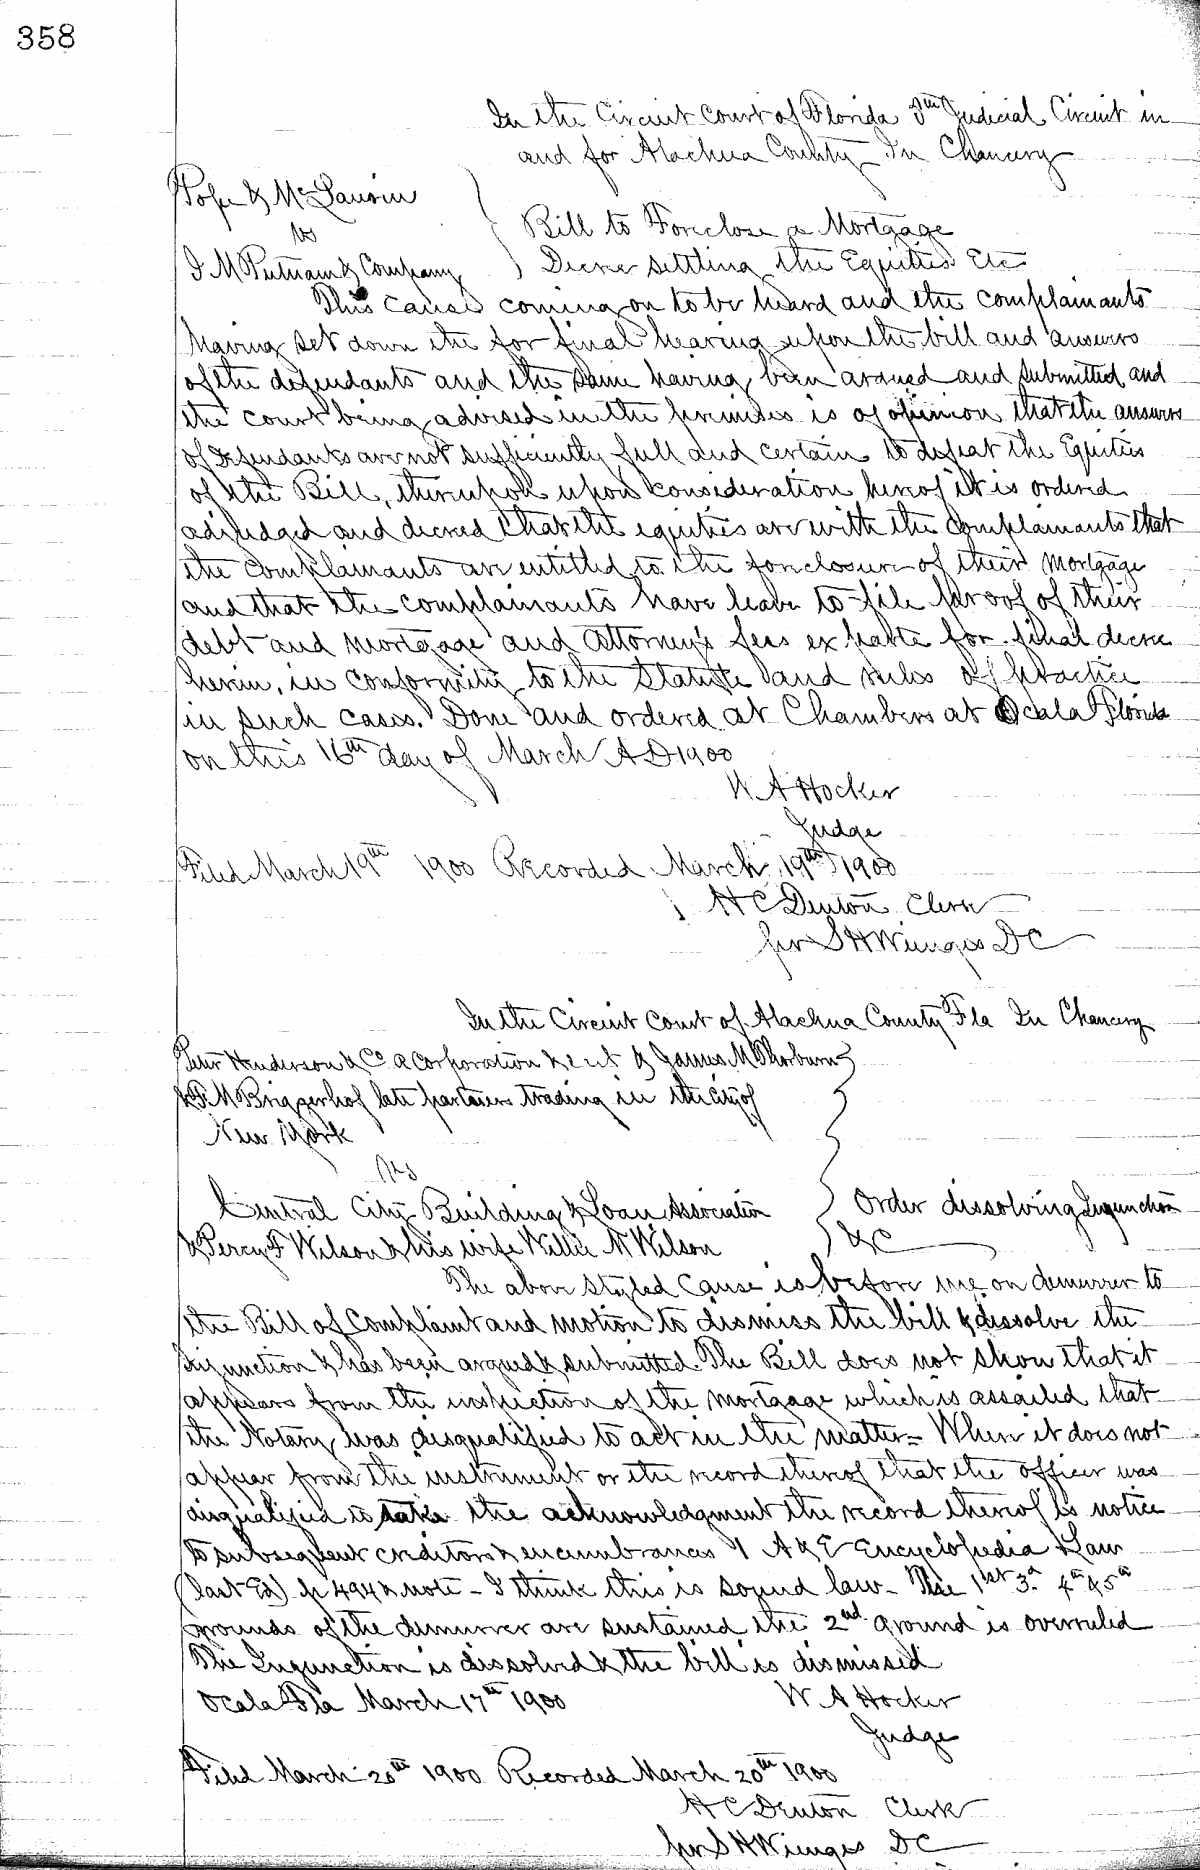 358
In the Circuit Court of Florida 5th Judicial Circuit in
and for Alachua County In Chancery
Pope & McLaurin
vs
I M Putnam & Company
Bill to Foreclose a Mortgage
Decree settling the Equities Etc
This cause coming on to be heard and the complainants
having set down the for final hearing upon the bill and answers
of the defendants and the same having been argued and submitted and
the court being advised in the premises is of opinion that the answers
of defendants are not sufficiently full and certain to defeat the Equities
of the Bill, thereupon upon consideration hereof it is ordered
adjudged and decreed that the equities are with the complainants that
the complainants are entitled to the foreclosure of their mortgage
and that the complainants have leave to file proof of their
debt and mortgage and Attorney's fees ex parte for final decree
herein, in conformity to the Statute and rules of practice
in such cases. Done and ordered at Chambers at Ocala Florida
on this 16th day of March A D 1900
W A Hocker
Judge
Filed March 19th 1900 Recorded March 19th 1900
H C Denton Clerk
per S H Wienges D C
In the Circuit Court of Alachua County Fla In Chancery
Peter Henderson & Co a Corporation & James M Thorburn
& F. M Briggerhof late partners trading in the city of
New York
vs
Central City Building & Loan Association
& Percy F Wilson & his wife Willie N Wilson
Order dissolving Injunction
&C
The above styled cause is before me on demurrer to
the Bill of Complaint and motion to dismiss the bill & dissolve the
injunction & has been argued & submitted. The Bill does not show that it
appears from the inspection of the mortgage which is assailed that
the Notary was disqualified to act in the matter - When it does not
appear from the instrument or the record thereof that the officer was
disqualified to take the acknowledgment the record thereof is notice
to subsequent creditors & encumbrances 1 A & E Encyclopedia & Law
(last Ed) p 494 & note - I think this is sound law - The 1st 3d 4th & 5th
grounds of the demurrer are sustained the 2nd ground is overruled
The Injunction is dissolved & the bill is dismissed
Ocala Fla March 17th 1900
W A Hocker
Judge
Filed March 20th 1900 Recorded March 20th 1900
H C Denton Clerk
per S H Wienges D C